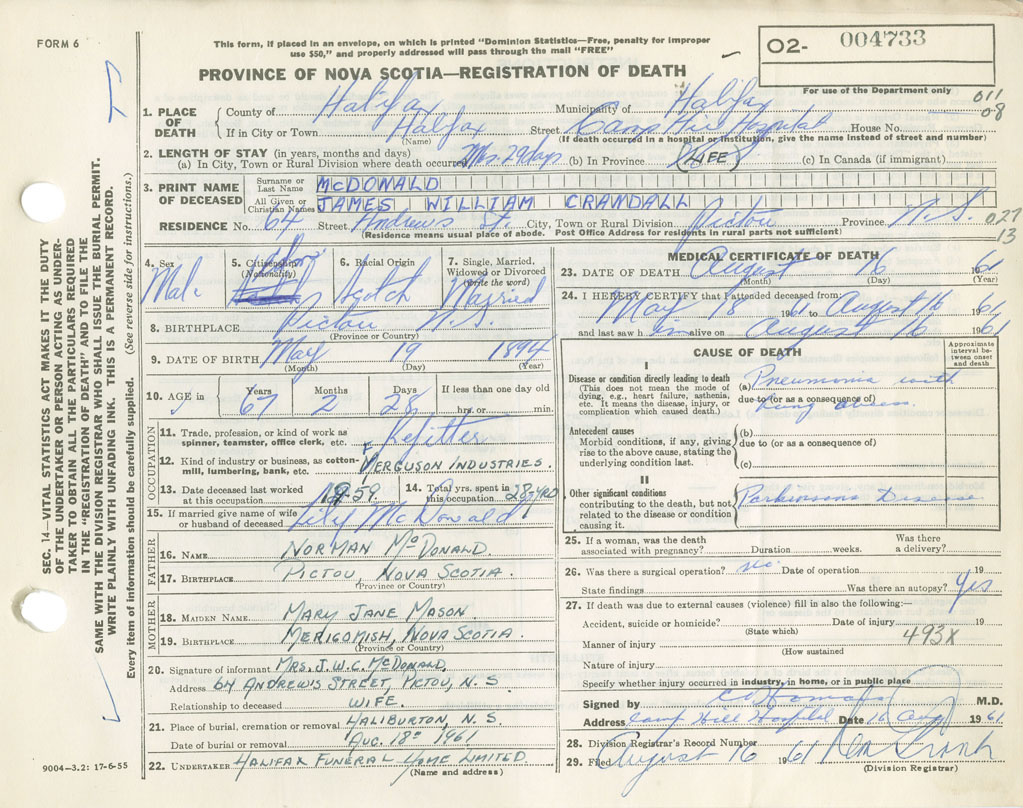 FORM 6
This form, if placed in an envelope, on which is printed "Dominion Statistics—Free, penalty for improper
use $50," and properly addressed will pass through the mail "FREE"
O2- 004733
For use of the Department only
PROVINCE OF NOVA SCOTIA—REGISTRATION OF DEATH
011
08
1. PLACE OF DEATH
County of Halifax Municipality of Halifax
If in City or Town Halifax Street Camp Hill Hospital House No.
(Name) (If death occurred in a hospital or institution, give the name instead of street and number)
2. LENGTH OF STAY (in years, months and days)
(a) In City, Town or Rural Division where death occurred 29 days (b) In Province (LIFE) (c) In Canada (if immigrant)
3. PRINT NAME OF DECEASED
Surname or Last Name McDONALD
All Given or Christian Names JAMES WILLIAM CRANDALL
RESIDENCE No. 64 Street Andrews St. City, Town or Rural Division Pictou Province N.S.
(Residence means usual place of abode. Post Office Address for residents in rural parts not sufficient)
027
13
4. Sex Male
5. Citizenship (Nationality)
6. Racial Origin Scotch
7. Single, Married, Widowed or Divorced (Write the word) Married
8. BIRTHPLACE Pictou N.S.
(Province or Country)
9. DATE OF BIRTH May 19 1894
(Month) (Day) (Year)
10. AGE in Years 67 Months 2 Days 28 If less than one day old hrs. or min.
OCCUPATION
11. Trade, profession, or kind of work as spinner, teamster, office clerk, etc. Refitter
12. Kind of industry or business, as cotton-mill, lumbering, bank, etc. FERGUSON INDUSTRIES.
13. Date deceased last worked at this occupation 1959
14. Total yrs. spent in this occupation 28 YRS
15. If married give name of wife or husband of deceased Lily McDonald
FATHER
16. NAME NORMAN McDONALD.
17. BIRTHPLACE PICTOU, NOVA SCOTIA.
(Province or Country)
MOTHER
18. MAIDEN NAME MARY JANE MASON
19. BIRTHPLACE MERIGOMISH, NOVA SCOTIA.
(Province or Country)
20. Signature of informant MRS. J.W.C. McDONALD.
Address 64 ANDREWS STREET, PICTOU, N.S
Relationship to deceased WIFE.
21. Place of burial, cremation or removal HALIBURTON, N.S.
Date of burial or removal AUG. 18th 1961
22. UNDERTAKER HALIFAX FUNERAL HOME LIMITED.
(Name and address)
MEDICAL CERTIFICATE OF DEATH
23. DATE OF DEATH August 16 1961
(Month) (Day) (Year)
24. I HEREBY CERTIFY that I attended deceased from
May 18 1961 to August 16 1961
and last saw him alive on August 16 1961
CAUSE OF DEATH
Approximate interval between onset and death
I
Disease or condition directly leading to death
(This does not mean the mode of dying, e.g., heart failure, asthenia, etc. It means the disease, injury, or complication which caused death.)
(a) Pneumonia with
due to (or as a consequence of)
lung abscess
Antecedent causes
Morbid conditions, if any, giving rise to the above cause, stating the underlying condition last.
(b)
due to (or as a consequence of)
(c)
II
Other significant conditions
contributing to the death, but not related to the disease or condition causing it.
Parkinsons Disease
25. If a woman, was the death associated with pregnancy? Duration weeks. Was there a delivery?
26. Was there a surgical operation? no Date of operation 19
State findings Was there an autopsy? Yes
27. If death was due to external causes (violence) fill in also the following:—
Accident, suicide or homicide? Date of injury 19
(State which)
Manner of injury 493X
(How sustained
Nature of injury
Specify whether injury occurred in industry, in home, or in public place
Signed by M.D.
Address Camp Hill Hospital Date 16 Aug 1961
28. Division Registrar's Record Number
29. Filed August 16 1961
(Division Registrar)
SEC. 14—VITAL STATISTICS ACT MAKES IT THE DUTY
OF THE UNDERTAKER OR PERSON ACTING AS UNDER-
TAKER TO OBTAIN ALL THE PARTICULARS REQUIRED
IN THE "REGISTRATION OF DEATH" AND TO FILE THE
SAME WITH THE DIVISION REGISTRAR WHO SHALL ISSUE THE BURIAL PERMIT.
WRITE PLAINLY WITH UNFADING INK. THIS IS A PERMANENT RECORD.
Every item of information should be carefully supplied. (See reverse side for instructions.)
9004—3.2: 17-6-55